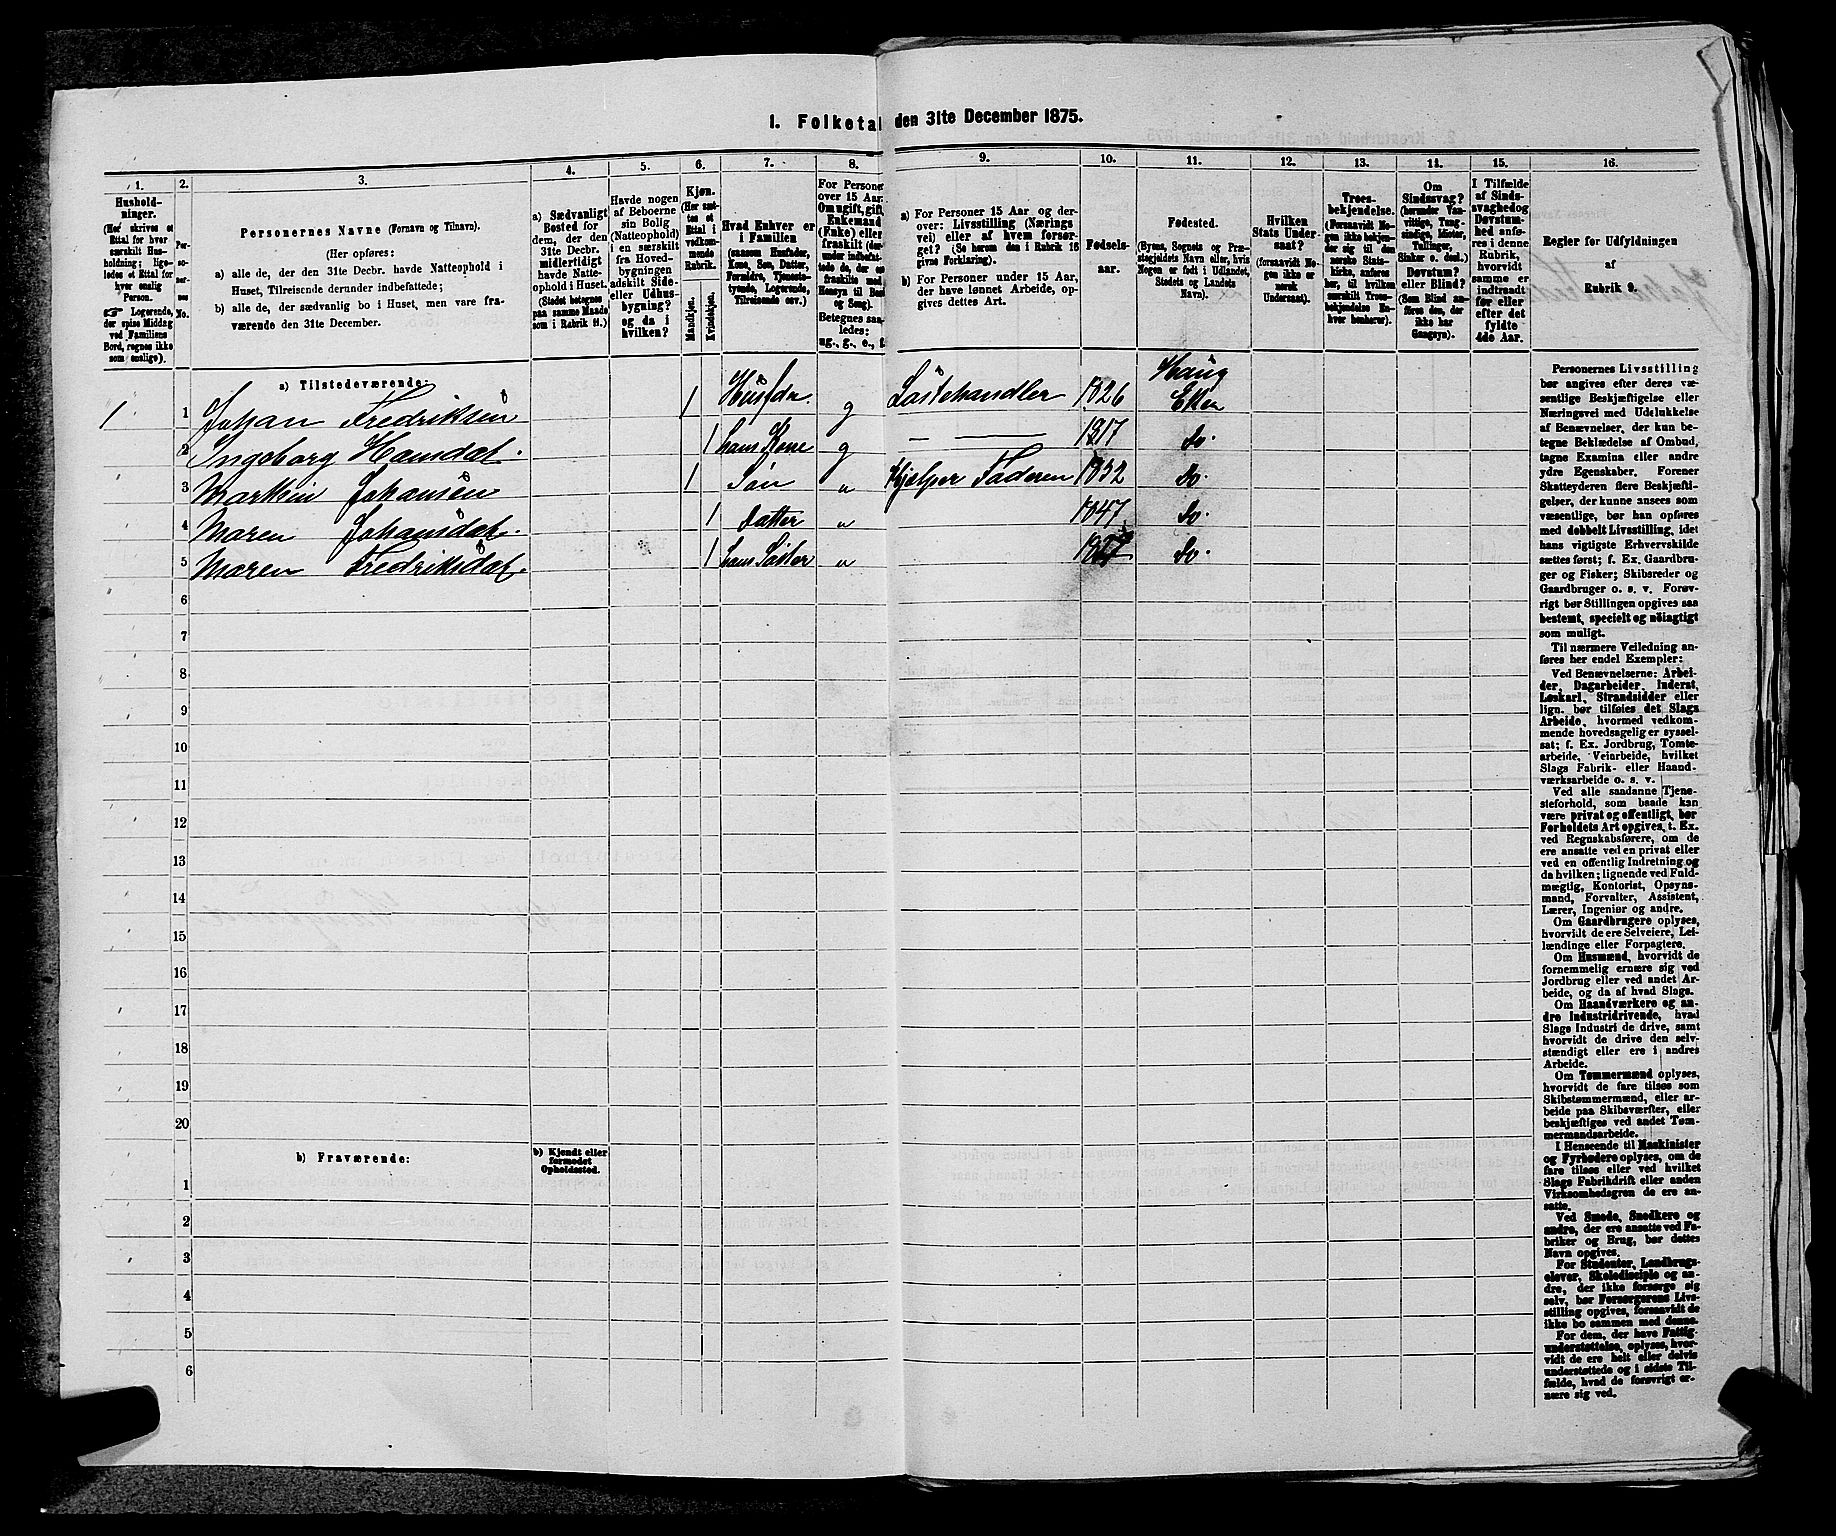 1. Folketal den 31te December 1875.
1. 2. 3. 4. 5. 6. 7. 8. 9. 10. 11. 12. 13. 14. 15. 16.
Hushold-
ninger.
(Her skrives et
Ettal for hver
særskilt Hus-
holdning; lige-
ledes et Ettal for
hver enslig
Person.
☞ Logerende,
der spise Middag
ved Familiens
Bord, regnes ikke
som enslige).
Per-
so-
ner-
nes
No.
Personernes Navne (Fornavn og Tilnavn).
(Her opføres:
a) alle de, der den 31te Decbr. havde Natteophold i
Huset, Tilreisende derunder indbefattede;
b) alle de, der sædvanlig bo i Huset, men vare fra-
værende den 31te December.
a) Sædvanligt
Bosted for
dem, der den
31te Decbr.
midlertidigt
havde Natte-
ophold i Huset.
(Stedet betegnes
paa samme Maade
som i Rubrik 11.)
Havde nogen
af Beboerne
sin Bolig
(Natteophold)
i en særskilt
fra Hoved-
bygningen
adskilt Side-
eller Udhus-
bygning?
og da i
hvilken?
Kjøn.
(Her sæt-
tes et
Ettal i
vedkom-
mende
Rubrik.
Mandkjøn.
Kvindekjøn.
Hvad Enhver er
i Familien
(saasom Husfader,
Kone, Søn, Datter,
Forældre, Tjeneste-
tyende, Logerende,
Tilreisende osv.)
For Personer
over 15 Aar:
Om ugift, gift,
Enkemand
(Enke) eller
fraskilt
Betegnes saa-
ledes:
ug., g., e., f.
a) For Personer 15 Aar og der-
over: Livsstilling (Nærings
vei) eller af hvem forsør-
get? (Se herom den i Rubrik 16
givne Forklaring).
b) For Personer under 15 Aar,
der have lønnet Arbeide, op-
gives dettes Art.
Fødsels-
aar.
Fødested.
(Byens, Sognets og Præ-
stegjeldets Navn eller, hvis
Nogen er født i Udlandet,
Stedets og Landets
Navn).
Hvilken
Stats Under-
saat?
(forsaavidt No-
gen ikke er
norsk
Undersaat).
Troes-
bekjendelse.
(Forsaavidt No-
gen ikke bekjen-
der sig til den
norske Stats-
kirke, anføres
her, til hvilken
særskilt Troes-
bekjendelse En-
hver henhører).
Om
Sindssvag?
(herunder Van-
vittige, Tung-
sindige, Idioter,
Tullinger,
Sinker o. desl.)
Døvstum?
eller Blind?
(Som Blind an-
føres den, der
ikke har
Gangsyn).
I Tilfælde
af Sinds-
svaghed og
Døvstum-
hed anfø-
res i denne
Rubrik,
hvorvidt
samme er
indtraadt
før eller
efter det
fyldte
4de Aar.
Regler for Udfyldningen
af
Rubrik 9.
a) Tilstedeværende:
1 1 Johan Fredriksen 1 Husfdr. g Løstehandler 1826 Haug Eker
2 Ingeborg Hansdat. 1 hans Kone g — — 1817 do.
3 Marthin Johansen 1 Søn „ Hjelper Faderen 1852 do.
4 Maren Johansdat. 1 datter „ 1847 do.
5 Maren Fredriksdat. 1 hans Søster „ do.
6
7
8
9
10
11
12
13
14
15
16
17
18
19
20
b) Fraværende:
b) Kjendt eller
formodet
Opholdssted.
1
2
3
4
5
6
Personernes Livsstilling
bør angives efter deres væ-
sentlige Beskjæftigelse eller
Næringsvei med Udelukkelse
af Benævnelser, der kun be-
tegne Beklædelse af Ombud,
tagne Examina eller andre
ydre Egenskaber. Forener
Skatteyderen flere Beskjæfti-
gelser, der kunne ansees som
væsentlige, bør han opføres
med dobbelt Livsstilling, idet
hans vigtigste Erhvervskilde
sættes først; f. Ex. Gaardbru-
ger og Fisker; Skibsreder og
Gaardbruger o. s. v. Forøv-
rigt bør Stillingen opgives saa
bestemt, specielt og nøiagtigt
som muligt.
Til nærmere Veiledning an-
føres her endel Exempler:
Ved Benævnelserne: Arbei-
der, Dagarbeider, Inderst,
Løskarl, Strandsidder eller
lign. bør tilføies det Slags
Arbeide, hvormed vedkom-
mende hovedsagelig er syssel-
sat; f. Ex. Jordbrug, Tomte-
arbeide, Veiarbeide, hvilket
Slags Fabrik- eller Haand-
værksarbeide o. s. v.
Ved alle saadanne Tjene-
steforhold, som baade kan
være privat og offentligt, bør
Forholdets Art opgives, t. Ex.
ved Regnskabsførere, om de
ere ansatte ved en privat eller
ved en offentlig Indretning og
da hvilken; lignende ved Fuld-
mægtig, Kontorist, Opsyns-
mand, Forvalter, Assistent,
Lærer, Ingeniør og andre.
Om Gaardbrugere oplyses,
hvorvidt de ere Selveiere, Lei-
lændinge eller Forpagtere.
Om Husmænd, hvorvidt de
fornemmelig ernære sig ved
Jordbrug eller ved andet Ar-
beide, og da af hvad Slags.
Om Haandværkere og an-
dre Industridrivende, hvad
Slags Industri de drive, samt
hvorvidt de drive den selv-
stændigt eller ere i andres
Arbeide.
Om Tømmermænd oplyses,
hvorvidt de fare tilsøs som
Skibstømmermænd, eller ar-
beide paa Skibsværfter, eller
beskjæftiges ved andet Tøm-
mermandsarbeide.
I Henseende til Maskinister
og Fyrbødere oplyses, om de
fare tilsøs eller ved hvilket
Slags Fabrikdrift eller anden
Virksomhedsgren de ere an-
satte.
Ved Smede, Snedkere og
andre, der ere ansatte ved Fa-
briker og Brug, bør dettes
Navn opgives.
For Studenter, Landbrugs-
elever, Skoledisciple og an-
dre, der ikke forsørge sig
selv, bør Forsørgerens Livs-
stilling opgives, forsaavidt de
ikke bo sammen med denne.
For dem, der have Fattig-
understøttelse, oplyses, hvor-
vidt de ere helt eller delvis
understøttede og i sidste Til-
fælde, hvad de forøvrigt er-
nære sig ved.